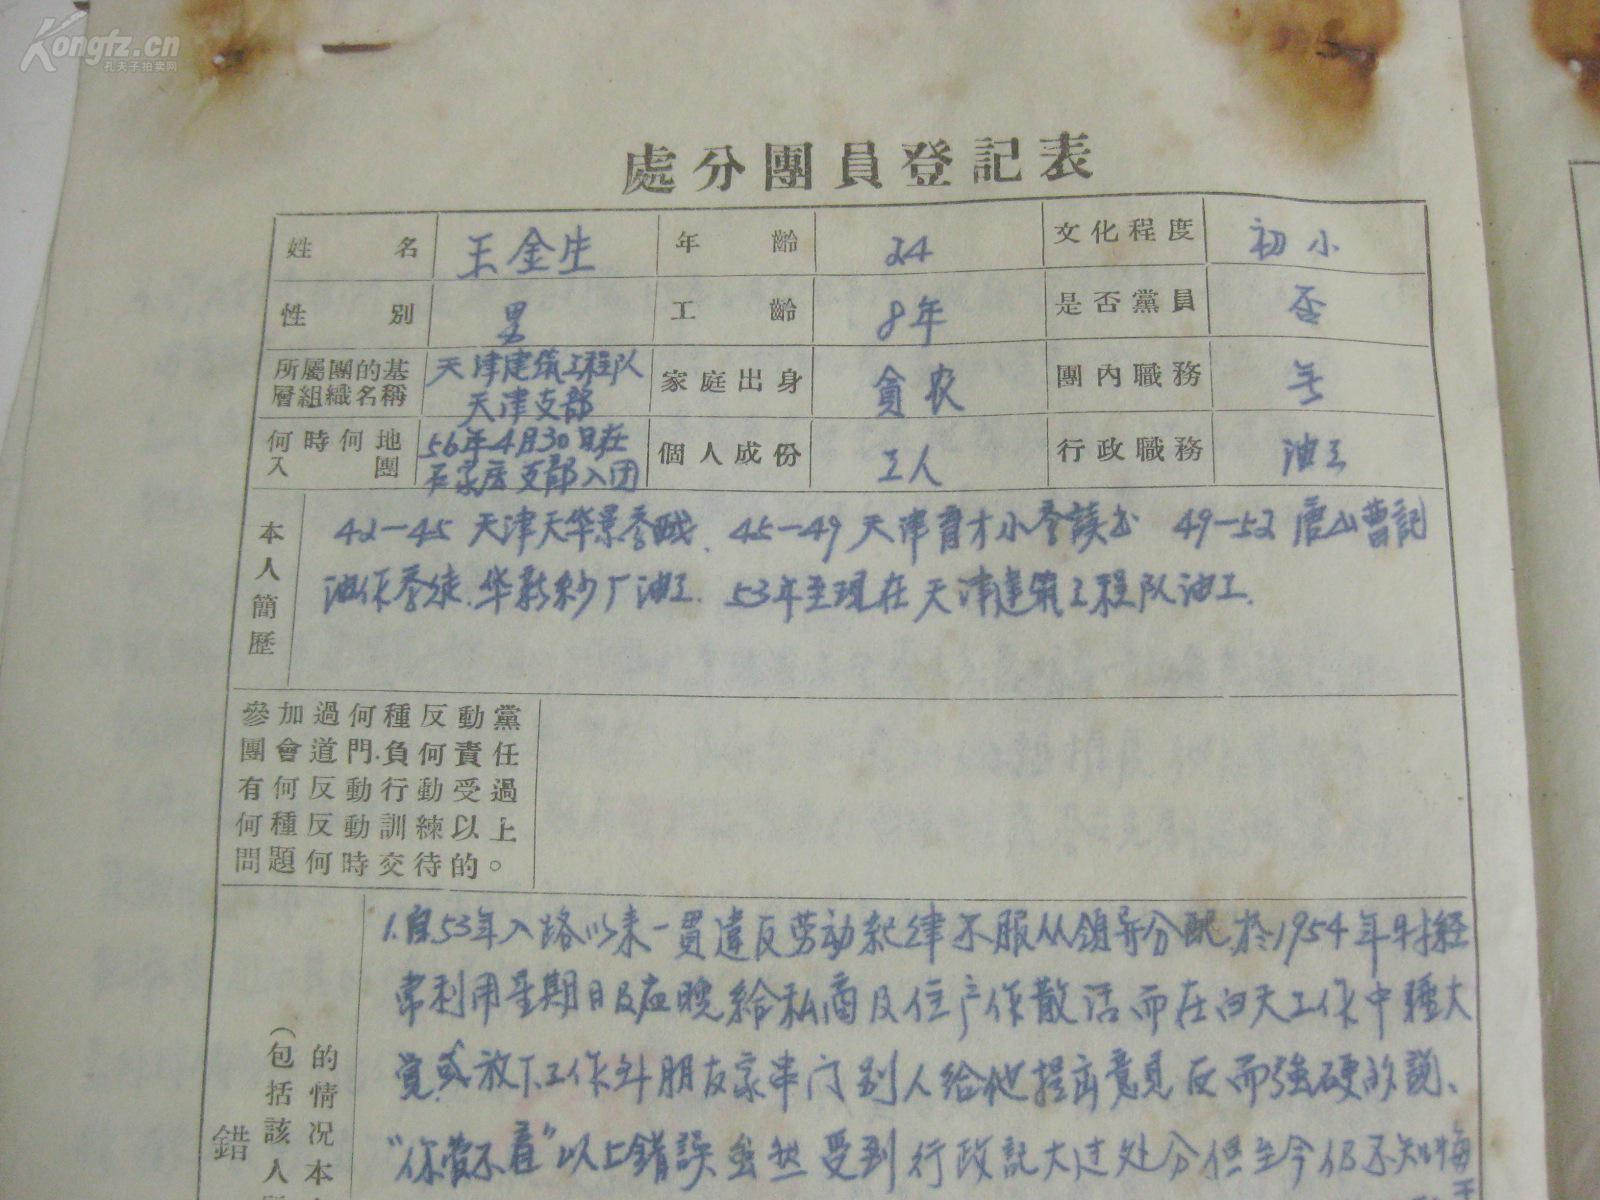 Kongfz.cn
孔夫子拍卖网
處分團員登記表
姓名 王金生 年齡 24 文化程度 初小
性別 男 工齡 8年 是否黨員 否
所屬團的基層組織名稱 天津建筑工程队天津支部 家庭出身 貧农 團內職務 无
何時何地入團 56年4月30日在石家庄支部入团 個人成份 工人 行政職務 油工
本人簡歷
42—45 天津天华景学戏、45—49 天津育才小学读书 49—52 唐山曹記
油作学徒、华新紗厂油工、53年至現在天津建筑工程队油工.
參加過何種反動黨
團會道門.負何責任
有何反動行動受過
何種反動訓練以上
問題何時交待的。
錯
的情況本
(包括該人
1.自53年入路以来一貫違反劳动紀律不服从領导分配,於1954年時經
常利用星期日及夜晚給私商及住户作散活而在白天工作中睡大
觉或放下工作到朋友家串门别人給他提出意見反而強硬的說、
“你管不着”以上錯誤虽然受到行政記大过处分但至今仍不知悔